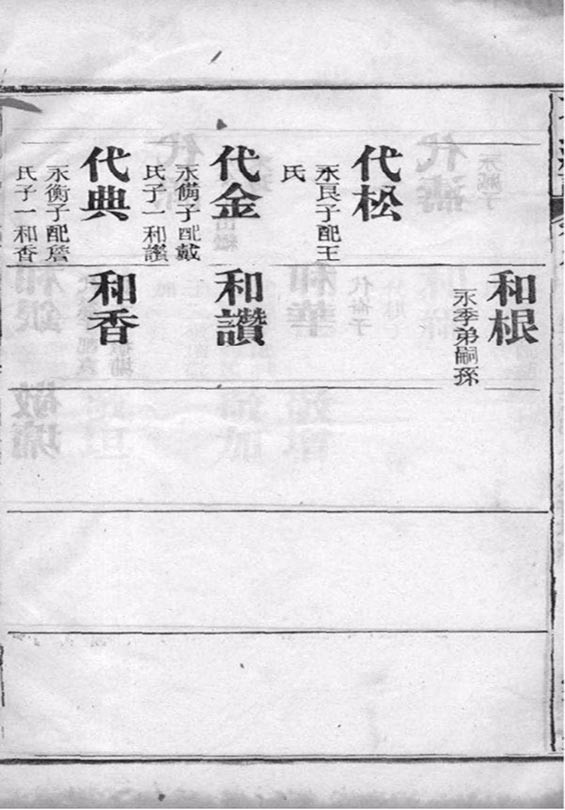 代松
永良子配王
氏
代金
永備子配戴
氏子一和讚
代典
永衡子配詹
氏子一和香
和根
永季弟嗣孫
和讚
和香